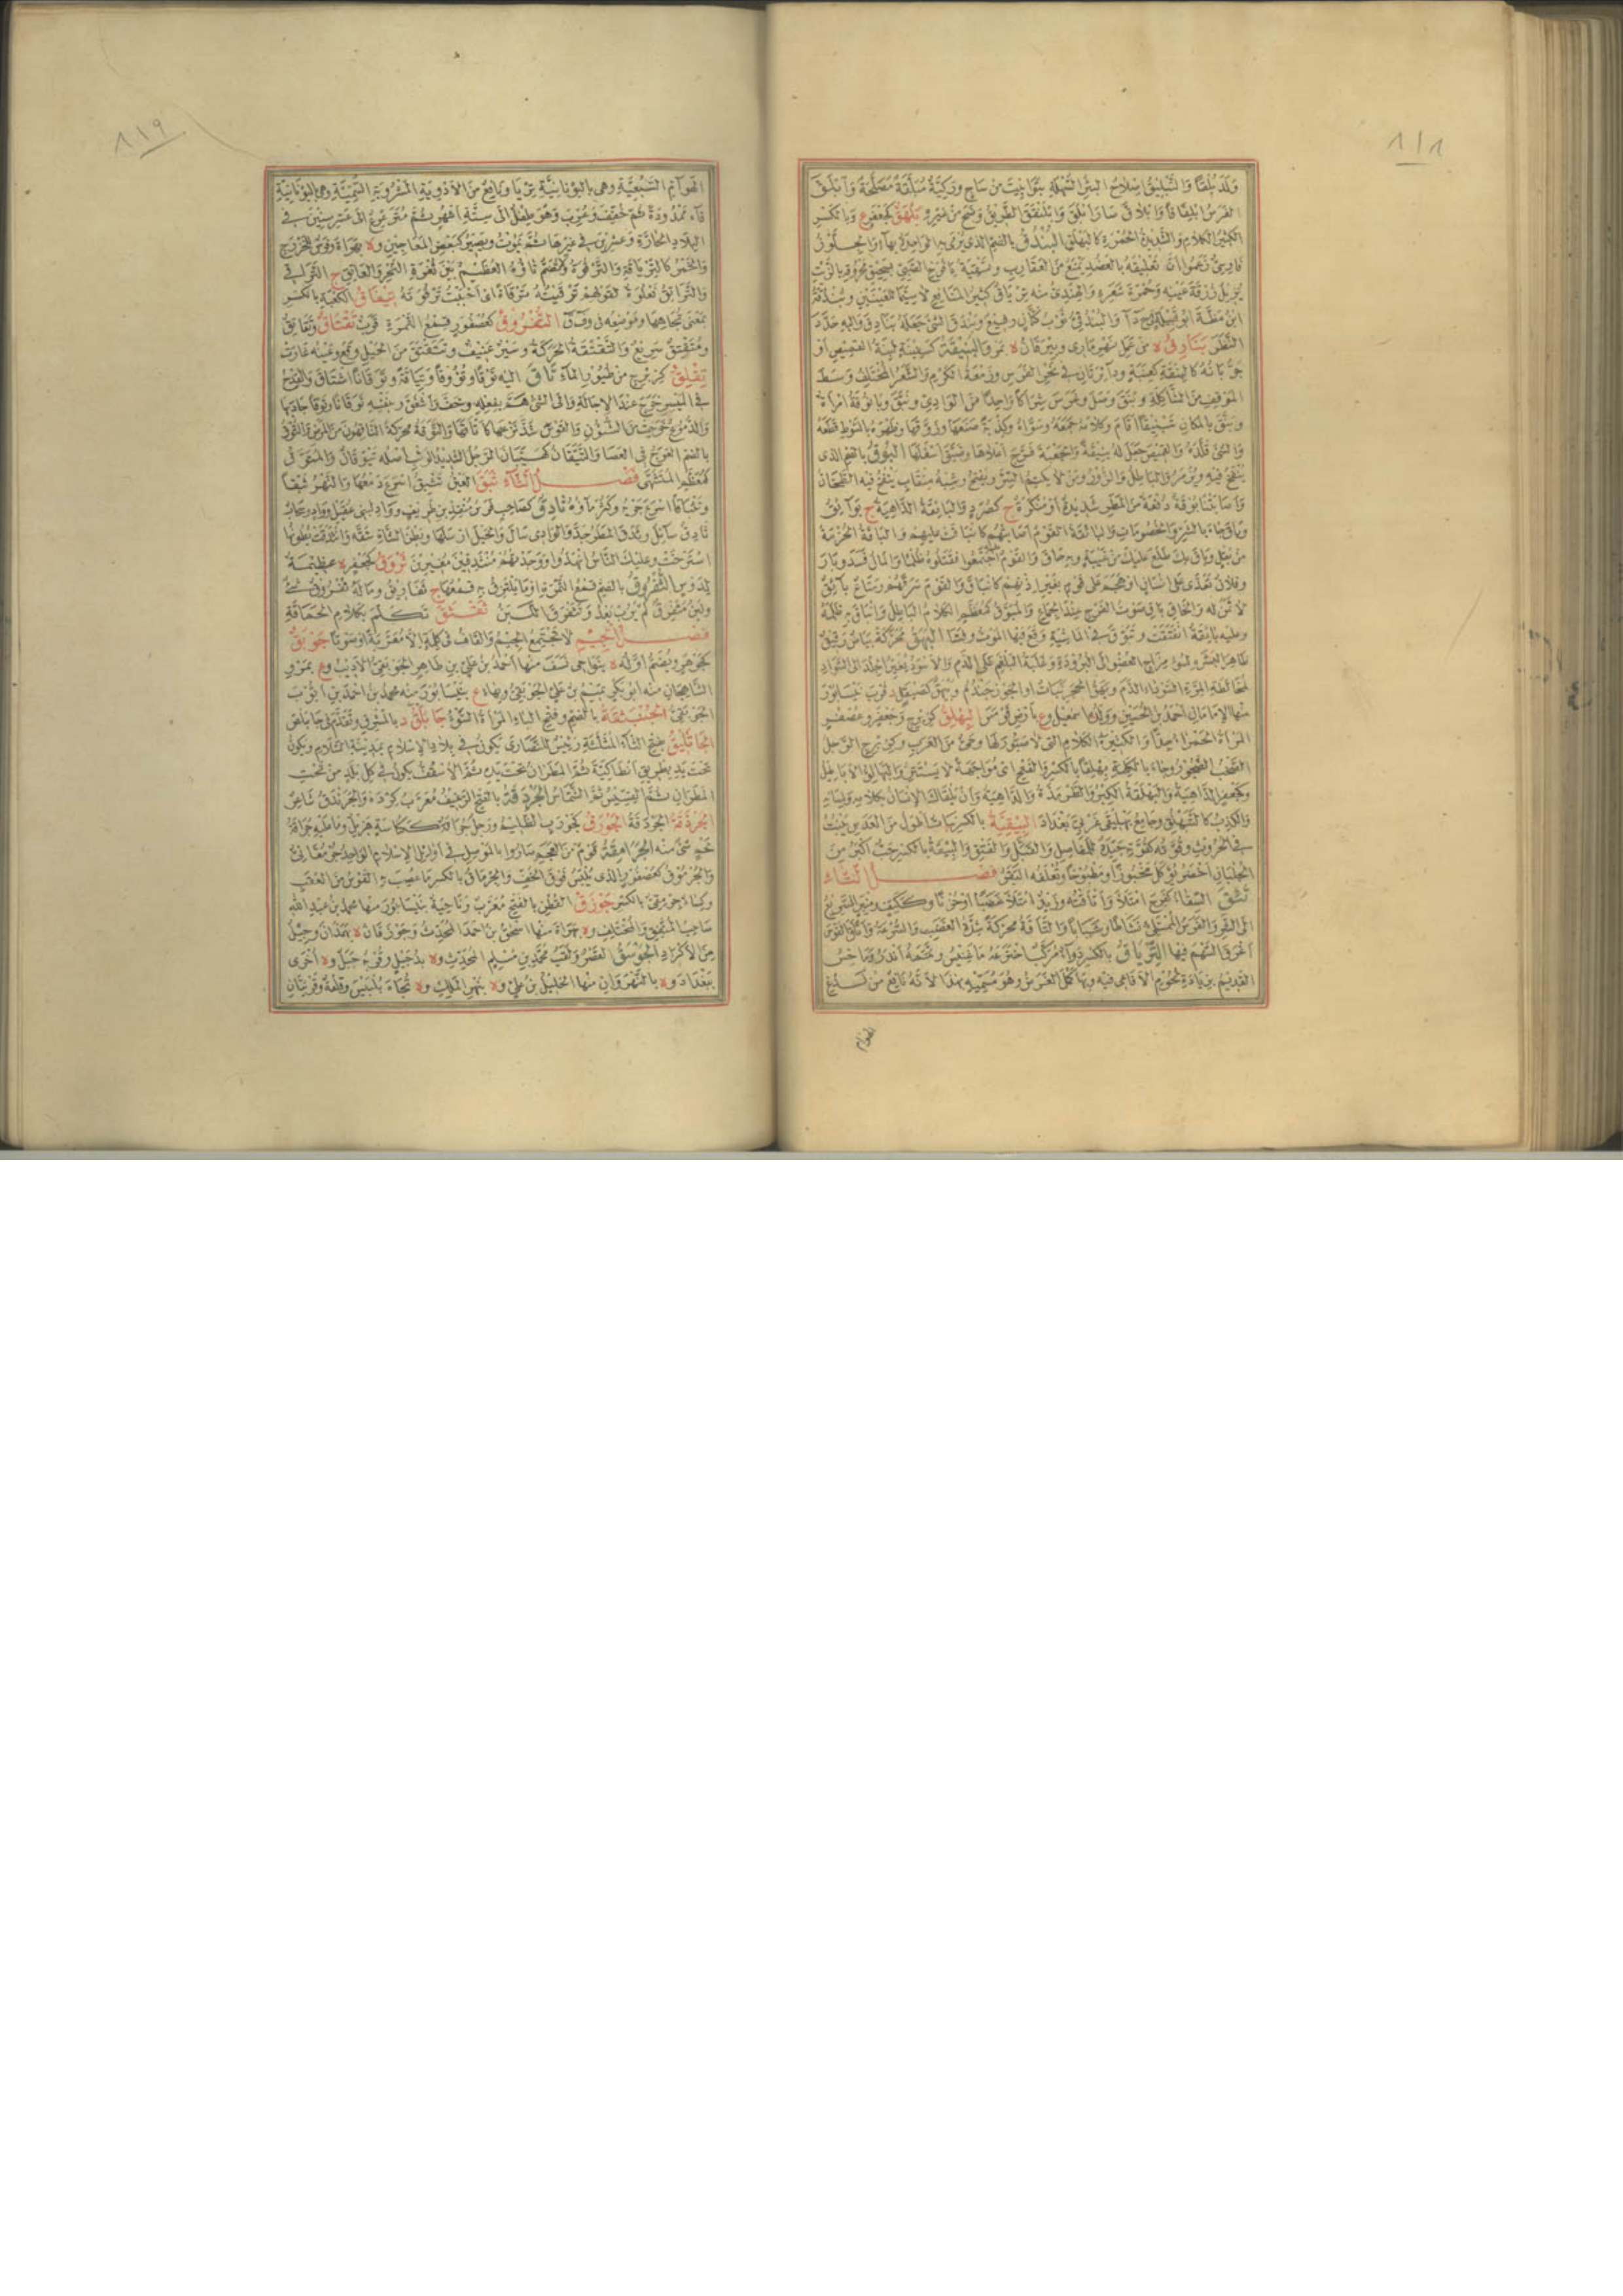 ٨١٨
ولد بلقا والتبليق اصلاح البئر السهلة بتوابيت من ساج وركية مبلقة مصلحة وابلق
الفرس ابلقاقا وابلاق صار ابلق وابلنقق الطريق وضح من غيره بلهق كجعفر ع وبالكسر
الكثير الكلام والشديدة الحمرة كالبهلق البندق بالضم الذي يرمى به الواحدة بهاء
فارسي زعموا ان تعليقه بالعضد يمنع من العقارب وتسقية يافوخ الصبي بسحيق محروقه بالزيت
يزيل زرقة عينيه وحمرة شعره والهندي منه ترياق كثير المنافع لا سيما للعينين وبندقة
ابن مظة ابو قبيلة والبندقي ثوب كتان رفيع وبندق الشئ جعله بنادق واليه حدد
النظر
جربانه
الموقف من الشاكلة وبنق وصل وغرس شراكا واحدا من الوادي ونبق
وبنق بالمكان تبنيقا اقام وكلامه جمعه وسواه وكذبة صنعها وزوقها وظهره بالسوط قطعه
والشئ قلده والقميص جعل له بنيقة والجعبة فرج اعلاها وضيق اسفلها البوق بالضم الذي
ينفخ فيه ويزمر والباطل والزور ومن لا يكتم السر ويفتح وشبه منقاب ينفخ فيه الطحان
واصابتنا بوقة دفعة من المطر شديدة او منكرة ج كصرد والبائقة الداهية ج بوائق
وباق جاء بالشر والخصومات والبائقة القوم اصابتهم كانباقت عليهم والباقة الحزمة
من بقل وباق بك طلع عليك من غيبة وبه حاق والقوم اجتمعوا فقتلوه ظلما والمال فسد وبار
وفلان تعدى على انسان او هجم على قوم بغير اذنهم كانباق والقوم سرقهم ومتاع بائق
لا ثمن له والخاق باق صوت الفرج عند الجماع والمبوق كمعظم الكلام الباطل وانباق به ظلمه
وعليه بائقة انفتقت وتبوق في الماشية وقع فيها الموت وفشا البهق محركة بياض رقيق
ظاهر البشرة لسوء مزاج العضو الى البرودة وغلبة البلغم على الدم والاسود يغير الجلد الى السواد
لمخالطة المرة السوداء الدم وبهق الحجر نبات او الجوز جندم وبيهق كصيقل د قرب نيسابور
منها الامامان احمد بن الحسين وولده اسمعيل وع بارض قومس البهلق كزبرج وجعفر وعصفر
المرأة الحمراء جدا والكثيرة الكلام التي لا صيور لها وحي من العرب وكزبرج الرجل
الضجور وجاء بالكلمة بهلقا بالكسر والفتح اى مواجهة لا يستتر بها والبهالق الاباطيل
وكجعفر الداهية والبهلقة الكبر والطرمذة والداهية وان يلقاك الانسان بكلامه ولسانه
والكذب كالتبهلق وجامع بهليقى غربي بغداد البيقية بالكسر نبات اطول من العدس ينبت
في الحروث وقوته كقوته جيدة للمفاصل والقبل والفتق والبيقة بالكسر حب اكبر من
الجلبان اخضر يؤكل مخبوزا ومطبوخا وتعلفه البقر فصل التاء
تئق السقاء كفرح امتلأ واتأقته وزيد امتلأ غضبا او حزنا وككيف ومنبر السريع
الى الشر والفرس الممتلئ نشاطا وشبابا والتأقة محركة شدة الغضب والسرعة واتأق القوس
اغرق السهم فيها الترياق بالكسر دواء مركب اخترعه ماغنيس وتممه اندروماخس
القديم بزيادة لحوم الافاعي فيه وبها كمل الغرض وهو مسميه بهذا لانه نافع من لدغ
الهوام
٨١٩
الهوام السبعية وهي باليونانية تريا ونافع من الادوية المشروبة السمية وهي باليونانية
قاء ممدودة ثم خفف وعرب وهو طفل الى ستة اشهر ثم مترعرع الى عشر سنين في
البلاد الحارة وعشرين في غيرها ثم يموت ويصير كبعض المعاجين وه بهراة وفرس للخزرج
والخمر كالترياقة والترقوة ولا تضم تاؤه العظم بين ثغرة النحر والعاتق ج التراقي
والترائق فعلوة لقولهم ترقيته ترقاة اى اصبت ترقوته تيفاق الكعبة بالكسر
بمعنى تجاهها وموضعه في وف ق التفروق كعصفور قمع التمرة قرب تقتاق وتقاتق
ومتقتق سريع والتقتقة الحركة وسير عنيف وتتقتق من الجبل وقع وعينه غارت
تقلق كزبرج من طيور الماء تاق اليه توقا وتؤوقا وتياقة وتوقانا اشتاق والقدح
في الميسر خرج عند الاجالة والى الشئ هم بفعله وخف واشفق وبنفسه توقانا وتوقا جاد بها
والدموع خرجت من الشؤون والقوس شد نزعها كاتاقها والتوقة محركة الناقهون من المرض والتوق
بالضم العوج في العصا والتيقان كهيبان الرجل الشديد الوثب اصله تيوقان والمتوق
كمعظم المتشهى فصل الثاء ثبق العين تثبق اسرع دمعها والنهر ثبقا
وتثباقا اسرع جريه وكثر ماؤه ثادق كصاحب فرس منقذ بن طريف وواد لبني عقيل وواد وسحاب
ثادق سائل وثدق المطر جد والوادي سال والخيل ارسلها وبطن الشاة شقه واندثقت بطونها
استرخت وعليك الناس انهدوا ووجدتهم منثدقين مغيرين ثروق كجعفر ه عظيمة
لدوس الثفروق بالضم قمع التمرة او ما يلتزق به قمعها ج ثفاريق وما له ثفروق شئ
ولبن مثفرق لم يرب بعد وتثفرق اللبن ثقثق تكلم بكلام الحماقة
فصل الجيم لا تجتمع الجيم والقاف في كلمة الا معربة او صوتا جوبق
كجوهر ويضم اوله ه بنواحي نسف منها احمد بن علي بن طاهر الجوبقي الاديب وع بمرو
الشاهجان منه ابو بكر تميم بن علي الجوبقي وبهاء ع بنيسابور منه محمد بن احمد بن ايوب
الجوبقي الجنبثقة بالضم وفتح الباء المرأة السوء جابلق د بالمشرق وتقدم في جابلص
الجاثليق بفتح الثاء المثلثة رئيس للنصارى يكون في بلاد الاسلام بمدينة السلام ويكون
تحت يد بطريق انطاكية ثم المطران تحت يده ثم الاسقف يكون في كل بلد من تحت
المطران ثم القسيس ثم الشماس الجردقة بالفتح الرغيف معرب كرده والجرندق شاعر
الجرذقة الجردقة الجورق كجورب الظليم ورجل جراقة ككناسة هزيل وما عليه جراقة
لحم شئ منه الجرامقة قوم من العجم صاروا بالموصل في اوائل الاسلام الواحد جرمقاني
والجرموق كعصفور الذي يلبس فوق الخف والجرماق بالكسر ما عصب به القوس من العقب
وكساء جرمقي بالكسر جوزق القطن بالفتح معرب وناحية بنيسابور منها محمد بن عبد الله
صاحب المتفق والمختلف وه بهراة منها اسحق بن احمد المحدث وجوزقان ه بهمذان وجيل
من الاكراد الجوسق القصر ولقب محمد بن مسلم المحدث وه بدجيل وقرى جبل وه اخرى
ببغداد وه بالنهروان منها الخليل بن علي وه بنهر الملك وه تجاه بلبيس وقلعة وقريتان